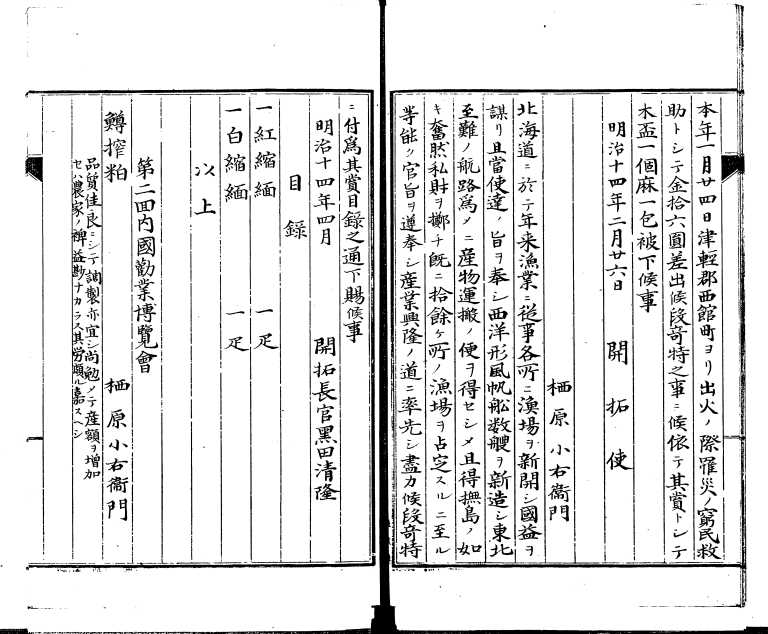 本年一月廿四日津輕郡西館町ヨリ出火ノ際罹災ノ窮民救
助トシテ金拾六圓差出候段竒特之事ニ候依テ其賞トシテ
木盃一個麻一包被下候事
明治十四年二月廿六日
開拓使
栖原小右衞門
北海道ニ於テ年来漁業ニ從事各所ニ漁場ヲ新開シ國益ヲ
謀リ且當使達ノ旨ヲ奉シ西洋形風帆舩数艘ヲ新造シ東北
至難ノ航路爲メニ産物運搬ノ便ヲ得セシメ且得撫島ノ如
キ奮然私財ヲ擲チ旣ニ拾餘ケ所ノ漁場ヲ占定スルニ至ル
等能ク官旨ヲ遵奉シ産業興隆ノ道ニ率先シ盡力候段竒特
ニ付爲其賞目録之通下賜候事
明治十四年四月
開拓長官黒田清隆
目録
一紅縮緬 一疋
一白縮緬 一疋
以上
第二回内國勸業博覽會
鱒搾粕 栖原小右衞門
品質佳良ニシテ調製亦宜シ尚勉メテ産額ヲ增加
セハ農家ノ裨益尠ナカラス其労頗ル嘉スヘシ